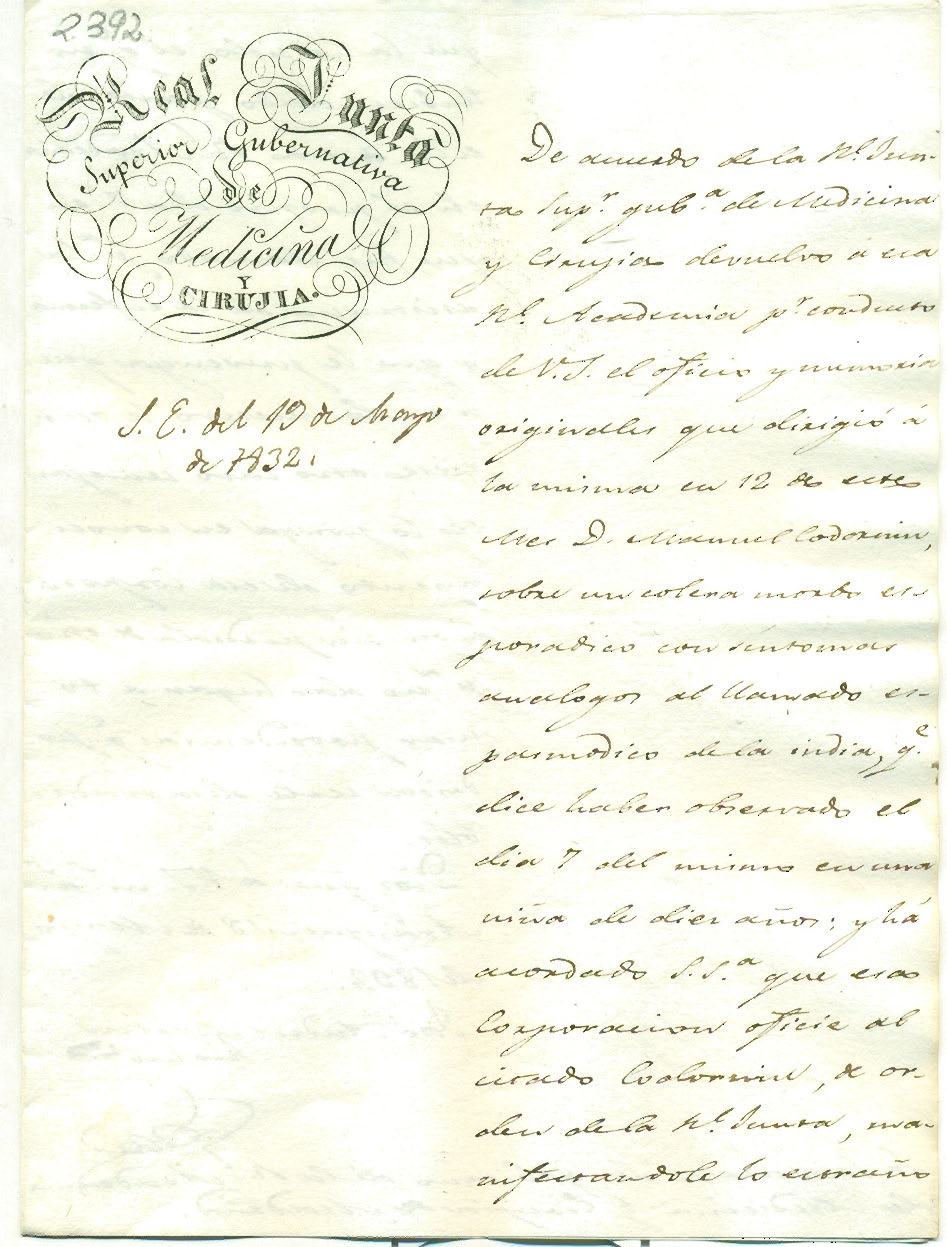 2392
Real Junta
Superior Gubernativa
de
Medicina
Y
CIRUJIA.
S. E. del 19 de Mayo
de 1832.
De acuerdo de la Rl. Jun-
ta Supr. gub.a de Medicina
y Cirujia devuelvo á esa
Rl. Academia pr. conducto
de V. S. el oficio y memoria
originales que dirigió á
la misma en 12 de este
Mes D. Manuel Codorniu,
sobre un colera morbo es-
poradico con sintomas
analogos al llamado es-
pasmodico de la india, q.e
dice haber observado el
dia 7 del mismo en una
niña de diez años; y há
acordado S. S.a que esa
Corporacion oficie al
citado Codorniu, de or-
den de la Rl. Junta, ma-
nifestandole lo estraño